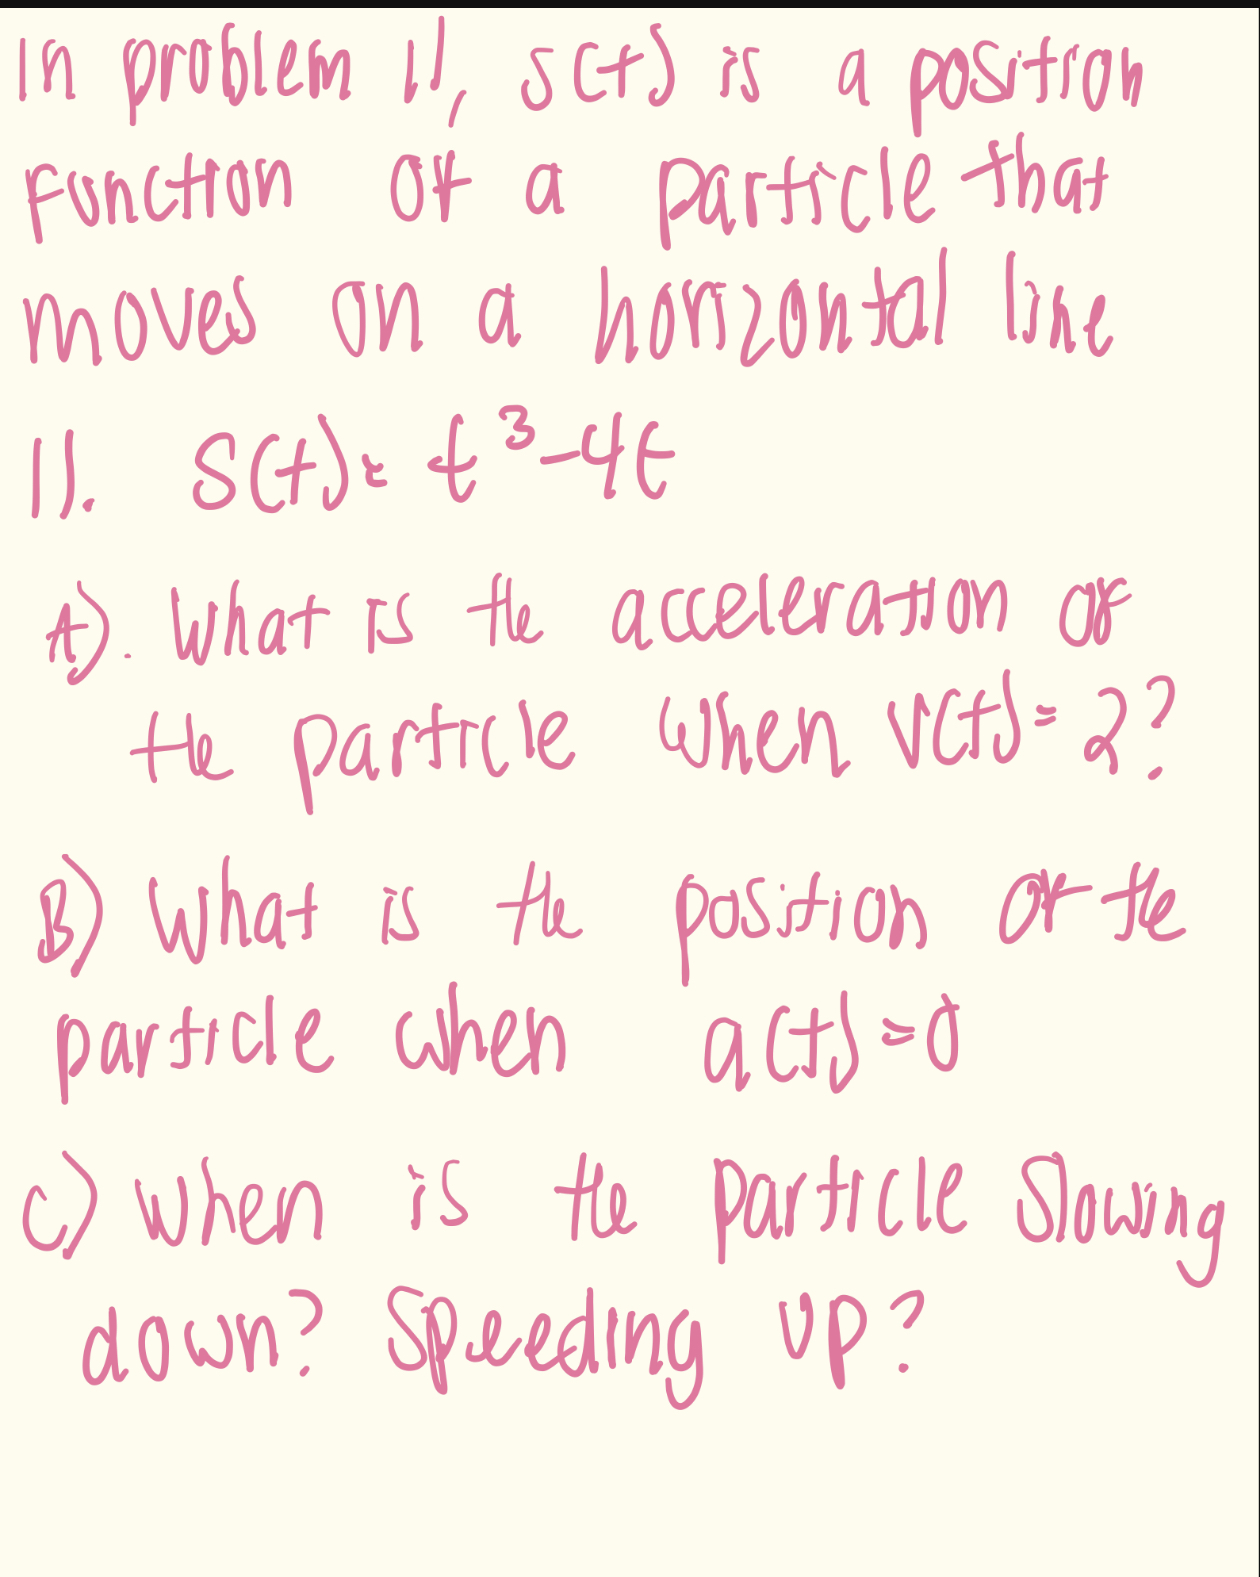 In problem 11, s(t) is a position
function of a particle that
moves on a horizontal line
11. S(t) = t³-4t
A). What is the acceleration of
the particle when v(t) = 2?
B) What is the position of the
particle when a(t) = 0
C) When is the particle slowing
down? Speeding up?